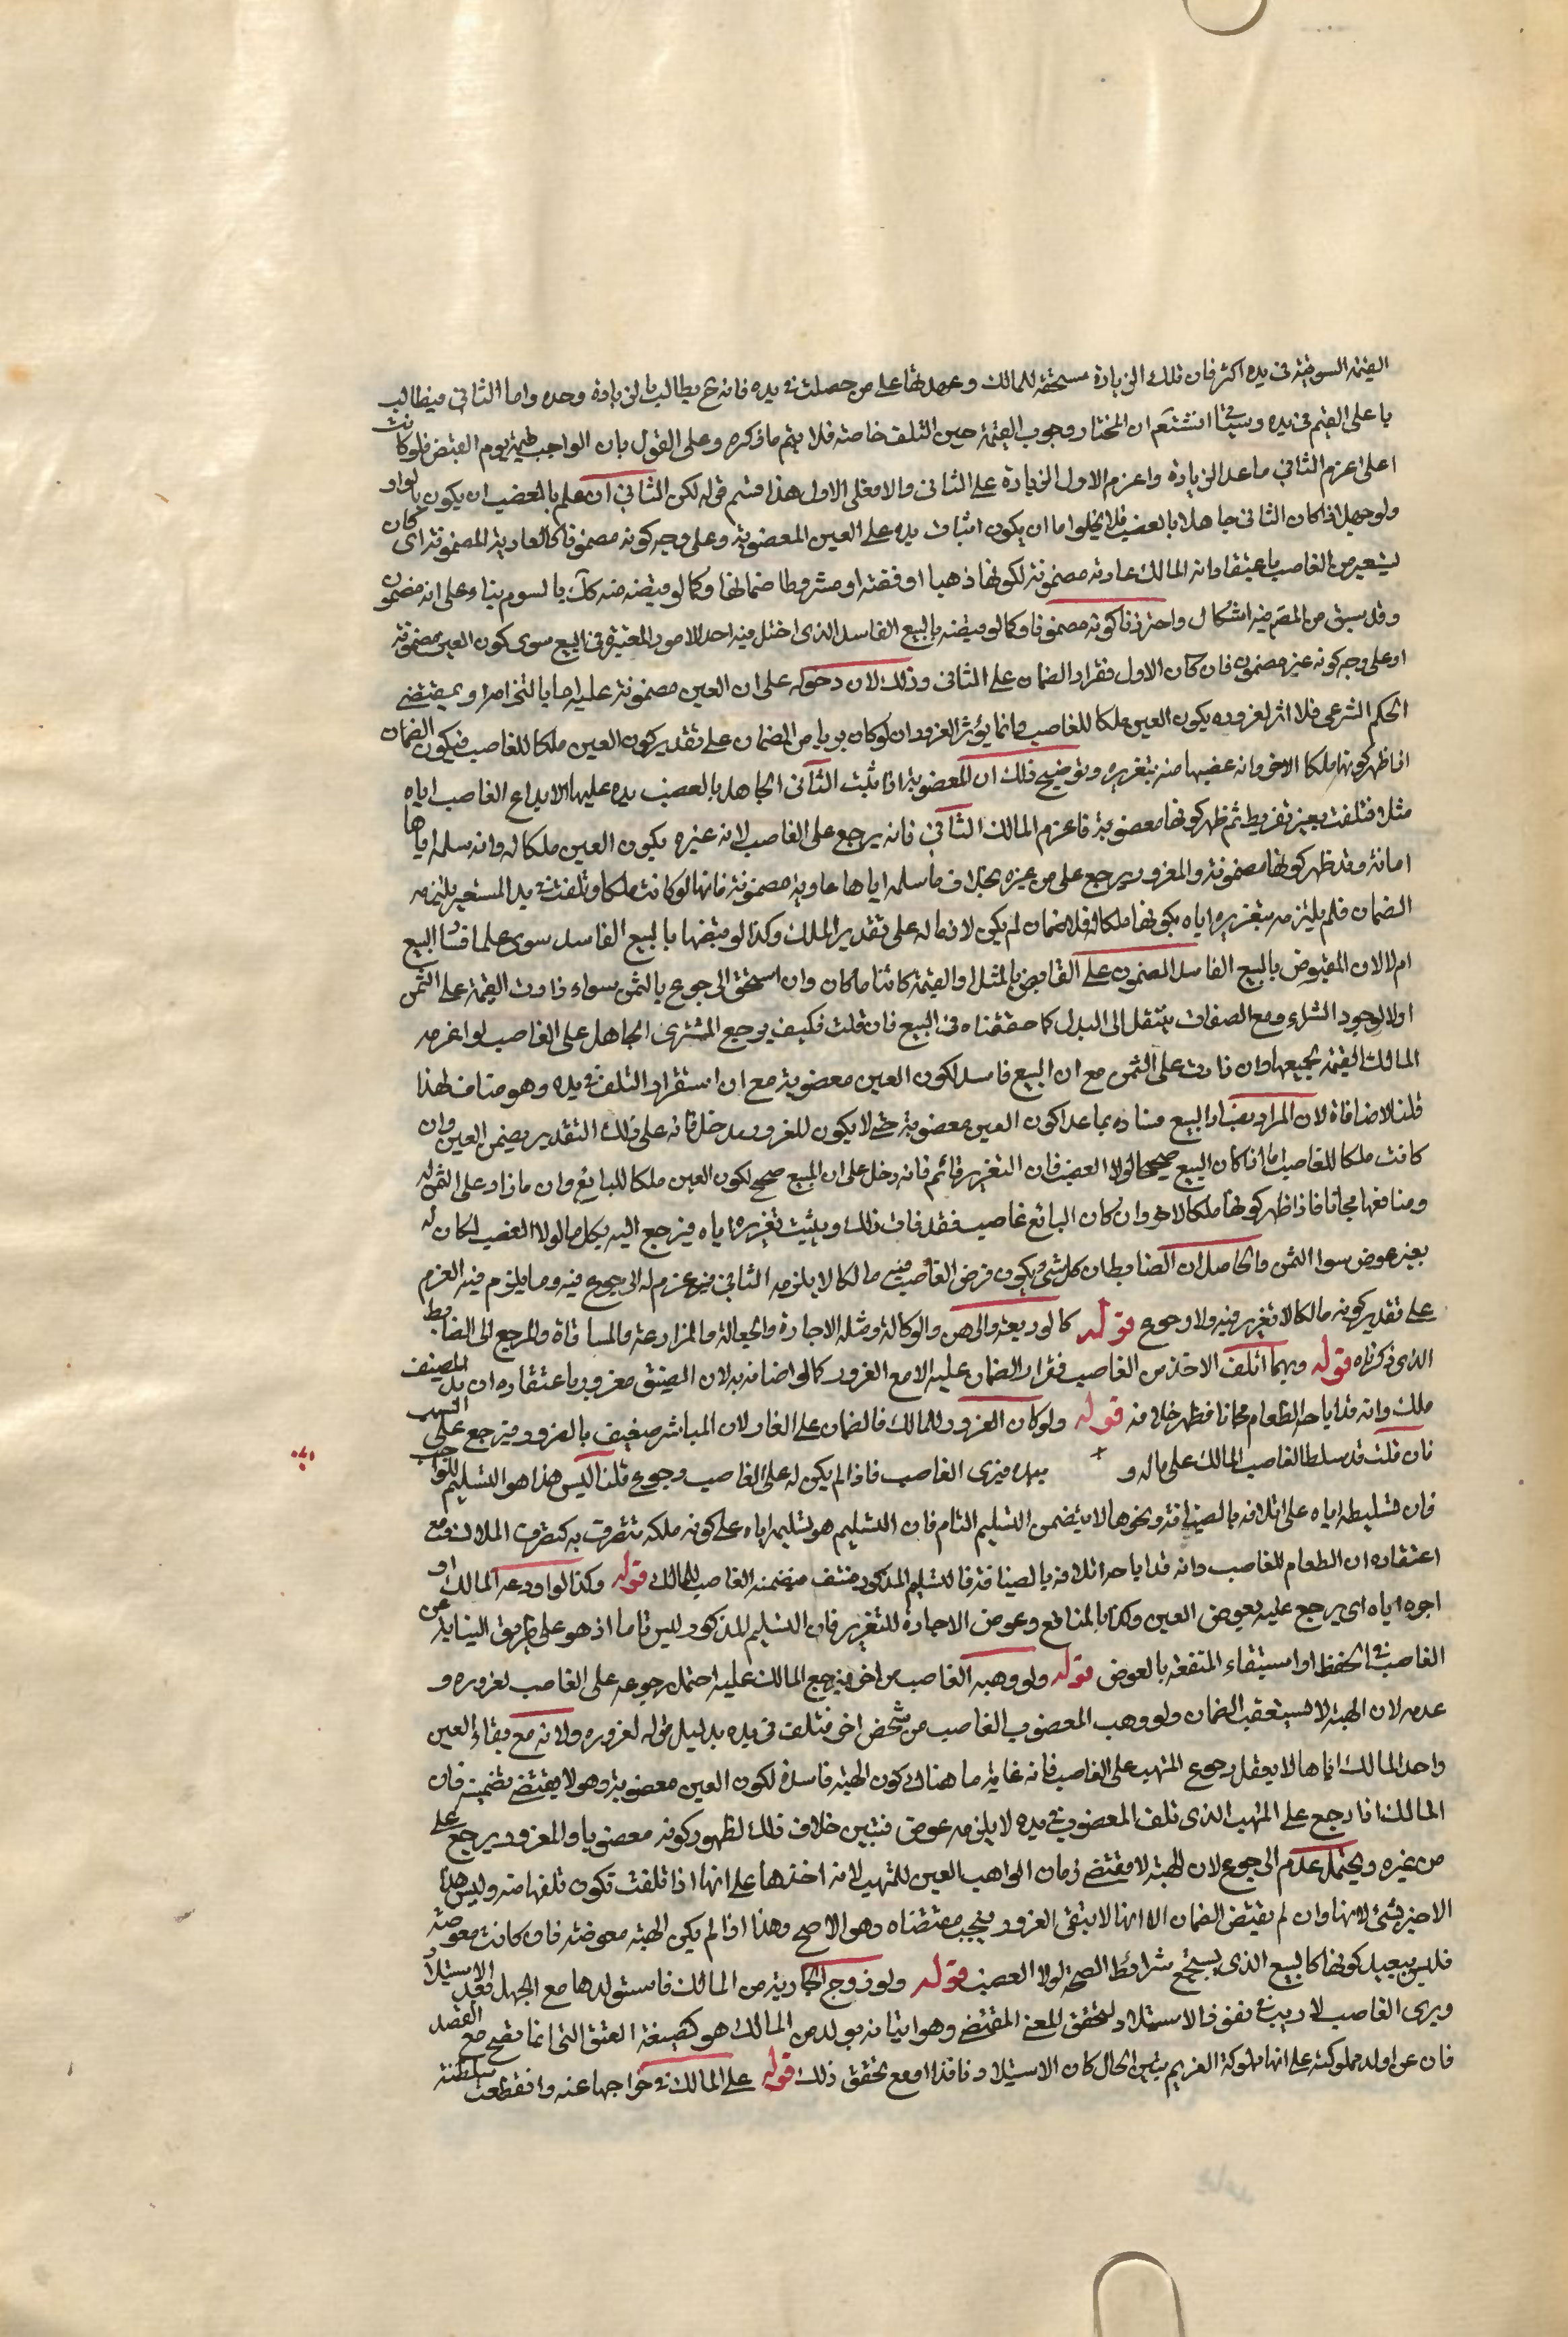 القيمة السوقية في يده اكثر فان تلك الزيادة مستحقة للمالك وعهدتها على من حصلت في يده فانه ح يطالب بالزيادة وحده واما الثاني فيطالب
باعلى القيم في يده وسياتي انشتعم ان المختار وجوب القيمة حين التلف خاصة فلا يتم ما ذكره وعلى القول بان الواجب قيمة يوم القبض فلو كانت
اعلى اغرم الثاني ما عدا الزيادة واغرم الاول الزيادة على الثاني والا فعلى الاول هذا قسم قوله لكن الثاني ان علم بالغصب ان يكون بالواو
ولو جهل اذا كان الثاني جاهلا بالغصب فلا يخلوا اما ان يكون اثبات يده على العين المغصوبة وعلى وجه كونه مضمونا كالعارية المضمونة اى كان
يستعير من الغاصب باعتقاد انه المالك عارية مضمونة لكونها ذهبا او فضة او مشروطا ضمانها وكما لو قبضه منه كك بالسوم بناء على انه مضمون
وقد سبق من المصم فيه اشكال واحترزنا كونه مضمونا وكما لو قبضه بالبيع الفاسد الذى اختل فيه احد الامور المعتبرة في البيع سوى كون العين مضمونة
او على وجه كونه غير مضمون فان كان الاول فقرار الضمان على الثاني وذلك لان دخوله على ان العين مضمونة عليه اما بالتزامه او بمقتضى
الحكم الشرعى فلا اثر لغروره بكون العين ملكا للغاصب وانما يؤثر الغرور ان لو كان بريا من الضمان على تقدير كون العين ملكا للغاصب فيكون الضمان
اذا ظهر كونها ملكا لاخر وانه غصبها منه بتغريره وتوضيح ذلك ان المغصوبة اذا تثبت الثاني الجاهل بالغصب يده عليها لايداع الغاصب اياه
مثلا فتلفت بغير تفريط ثم ظهر كونها مغصوبة فاغرم المالك الثاني فانه يرجع على الغاصب لانه غره بكون العين ملكا له وانه سلمه اياها
امانة وقد ظهر كونها مضمونة والمغرور يرجع على من غره بخلاف ما سلمه اياها عارية مضمونة فانها لو كانت ملكا وتلفت في يد المستعير يلتزمه
الضمان فلم يلتزمه بتغريره اياه بكونها ملكا له فلا ضمان لم يكن لازما له على تقدير الملك وكذا لو قبضها بالبيع الفاسد سوى علما فساد البيع
ام لا لان المقبوض بالبيع الفاسد المضمون على القابض بالمثل او القيمة كائنا ما كان وان استحق الرجوع بالثمن سواء زادت القيمة على الثمن
او لا لوجود الشراء ومع الصفات ينتقل الى البدل كما حققناه في البيع فان قلت فكيف يرجع المشترى الجاهل على الغاصب لو اغرمه
المالك القيمة بجميعها وان زادت على الثمن مع ان البيع فاسد لكون العين مغصوبة مع ان استقرار التلف في يده وهو مناف لهذا
قلنا لا منافاة لان المراد بفساد البيع فساده بما عدا كون العين مغصوبة حتى لا يكون للغرور مدخل فانه على ذلك التقدير يضمن العين وان
كانت ملكا للغاصب اما اذا كان البيع صحيحا لولا الغصب فان التغرير قائم فانه دخل على ان المبيع صحيح لكون العين ملكا للبايع وان ما زاد على الثمن له
ومنافعها مجانا فاذا ظهر كونها ملكا لاخر وان كان البائع غاصب فقد فات ذلك ويثبت تغريره اياه فيرجع اليه بكل ما لولا الغصب لكان له
بغير عوض سوا الثمن والحاصل ان الضابطان كل شئ ويكون فرض الغاصب فيه مالكا لا يلزمه الثاني فيه غرم له الرجوع فيه وما يلزم فيه الغرم
على تقدير كونه مالكا لا تغرير فيه ولا رجوع قوله كالوديعة والرهن والوكالة ومثله الاجارة والجعالة والمزارعة والمساقاة والمرجع الى الضابط
الذى ذكرناه قوله ومهما اتلف الاخذ من الغاصب فقرار الضمان عليه الا مع الغرور كما لو اضافه به لان الضيف مغرور باعتقاده ان بدل المضيف
ملك وانه قد اباحه الطعام مجانا فظهر خلافه قوله ولو كان الغرور للمالك فالضمان على الغار لان المباشر ضعيف بالغرور فيرجع على السبب
فان قلت قد سلط الغاصب المالك على ماله و بيده فيزى الغاصب فاذا لم يكن له على الغاصب رجوع قلنا ليس هذا هو التسليم الواجب
فان تسليطه اياه على اتلافه بالضيافة ونحوها لا يتضمن التسليم التام فان التسليم هو تسليمه اياه على كونه ملكه يتصرف به كتصرف الملاك ومع
اعتقاده ان الطعام للغاصب وانه قد اباحه اتلافه بالضيافة فالتسليم المذكور منتف فيضمنه الغاصب للمالك قوله وكذا لو اودعه المالك او
اجره اياه اى يرجع عليه بعوض العين وكذا بالمنافع وعوض الاجارة للتغرير فان التسليم المذكور ليس تاما اذ هو على طريق النيابة عن
الغاصب في الحفظ او استيفاء المنفعة بالعوض قوله ولو وهبه الغاصب من اخر فرجع المالك عليه احتمل رجوعه على الغاصب لغروره و
عدمه لان الهبة لا تستعقب الضمان ولو وهب المغصوب الغاصب من شخص اخر فتلف في يده بدليل قوله لغروره ولانه مع بقاء العين
واخذ المالك اياها لا يعقل رجوع المتهب على الغاصب فانه غاية ما هناك كون الهبة فاسدة لكون العين مغصوبة وهو لا يقتضى تضمينه فان
المالك اذا رجع على المتهب الذى تلف المغصوب في يده لا يلزمه عوض فتبين خلاف ذلك لظهور كونه مغصوبا والمغرور يرجع على
من غره ويحتمل عدم الرجوع لان الهبة لا تقتضى زمان الواهب العين للمتهب لانه اخذها على انها اذا تلفت تكون تلفها منه وليس هذا
الاخير بشئ لانها وان لم يقتض الضمان الا انها لا ينتفى الغرور فيجب مقتضاه وهو الاصح وهذا اذا لم يكن الهبة معوضة فان كانت معوضة
فليس ببعيد كونها كالبيع الذى يستجمع شرائط الصحة لولا الغصب قوله ولو زوج الجارية من المالك فاستولدها مع الجهل نفذ الاستيلاد
وبرى الغاصب لا ريب في نفوذ الاستيلاد لتحقق المعنى المقتضى وهو اتيانه بولد من المالك هو كصيغة العتق التى انما يقع مع القصد
فان عن اولد مملوكته على انها مملوكة الغير ثم يتبين الحال كان الاستيلاد نافذا ومع تحقق ذلك قوله على المالك في خراجها عنه وانقطعت سلطنته